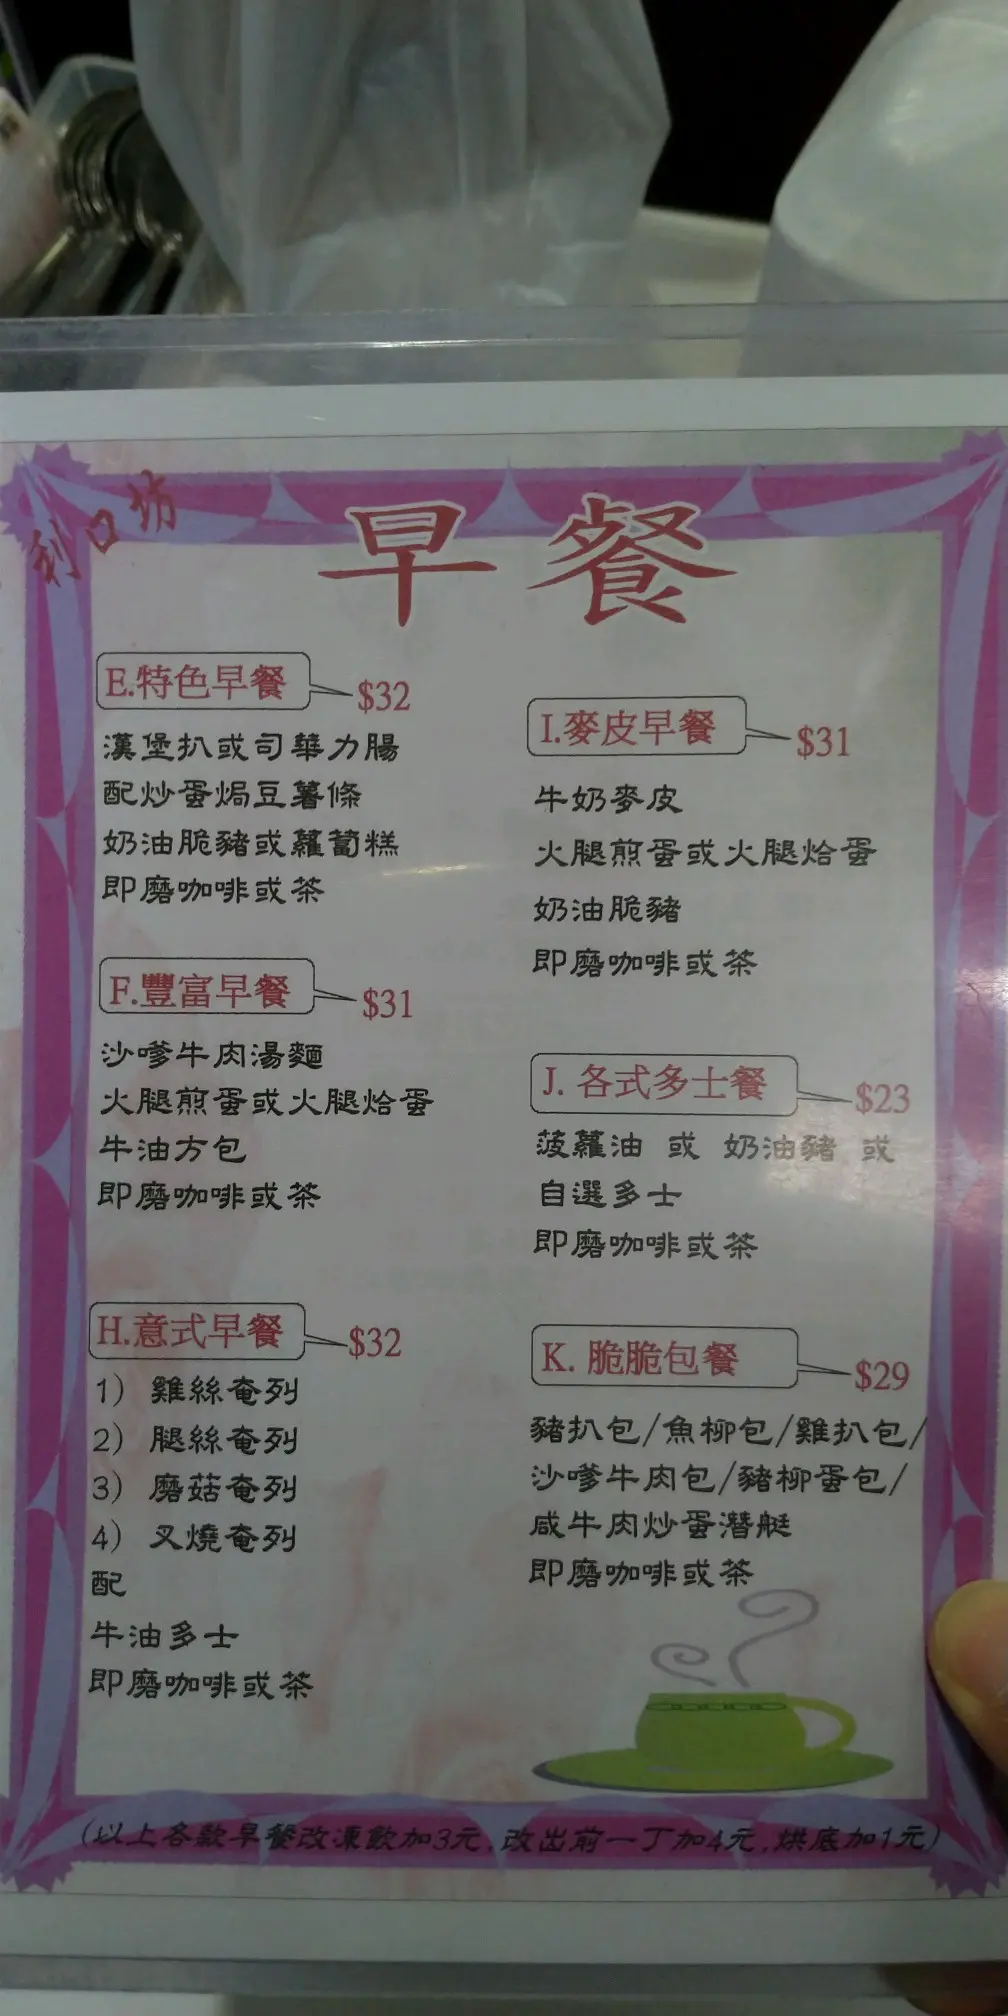 利口坊
早餐
E.特色早餐 $32
漢堡扒或司華力腸
配炒蛋焗豆薯條
奶油脆豬或蘿蔔糕
即磨咖啡或茶
F.豐富早餐 $31
沙嗲牛肉湯麵
火腿煎蛋或火腿烚蛋
牛油方包
即磨咖啡或茶
H.意式早餐 $32
1) 雞絲奄列
2) 腿絲奄列
3) 磨菇奄列
4) 叉燒奄列
配
牛油多士
即磨咖啡或茶
I.麥皮早餐 $31
牛奶麥皮
火腿煎蛋或火腿烚蛋
奶油脆豬
即磨咖啡或茶
J. 各式多士餐 $23
菠蘿油 或 奶油豬 或
自選多士
即磨咖啡或茶
K. 脆脆包餐 $29
豬扒包/魚柳包/雞扒包/
沙嗲牛肉包/豬柳蛋包/
咸牛肉炒蛋潛艇
即磨咖啡或茶
(以上各款早餐改凍飲加3元,改出前一丁加4元,烘底加1元)